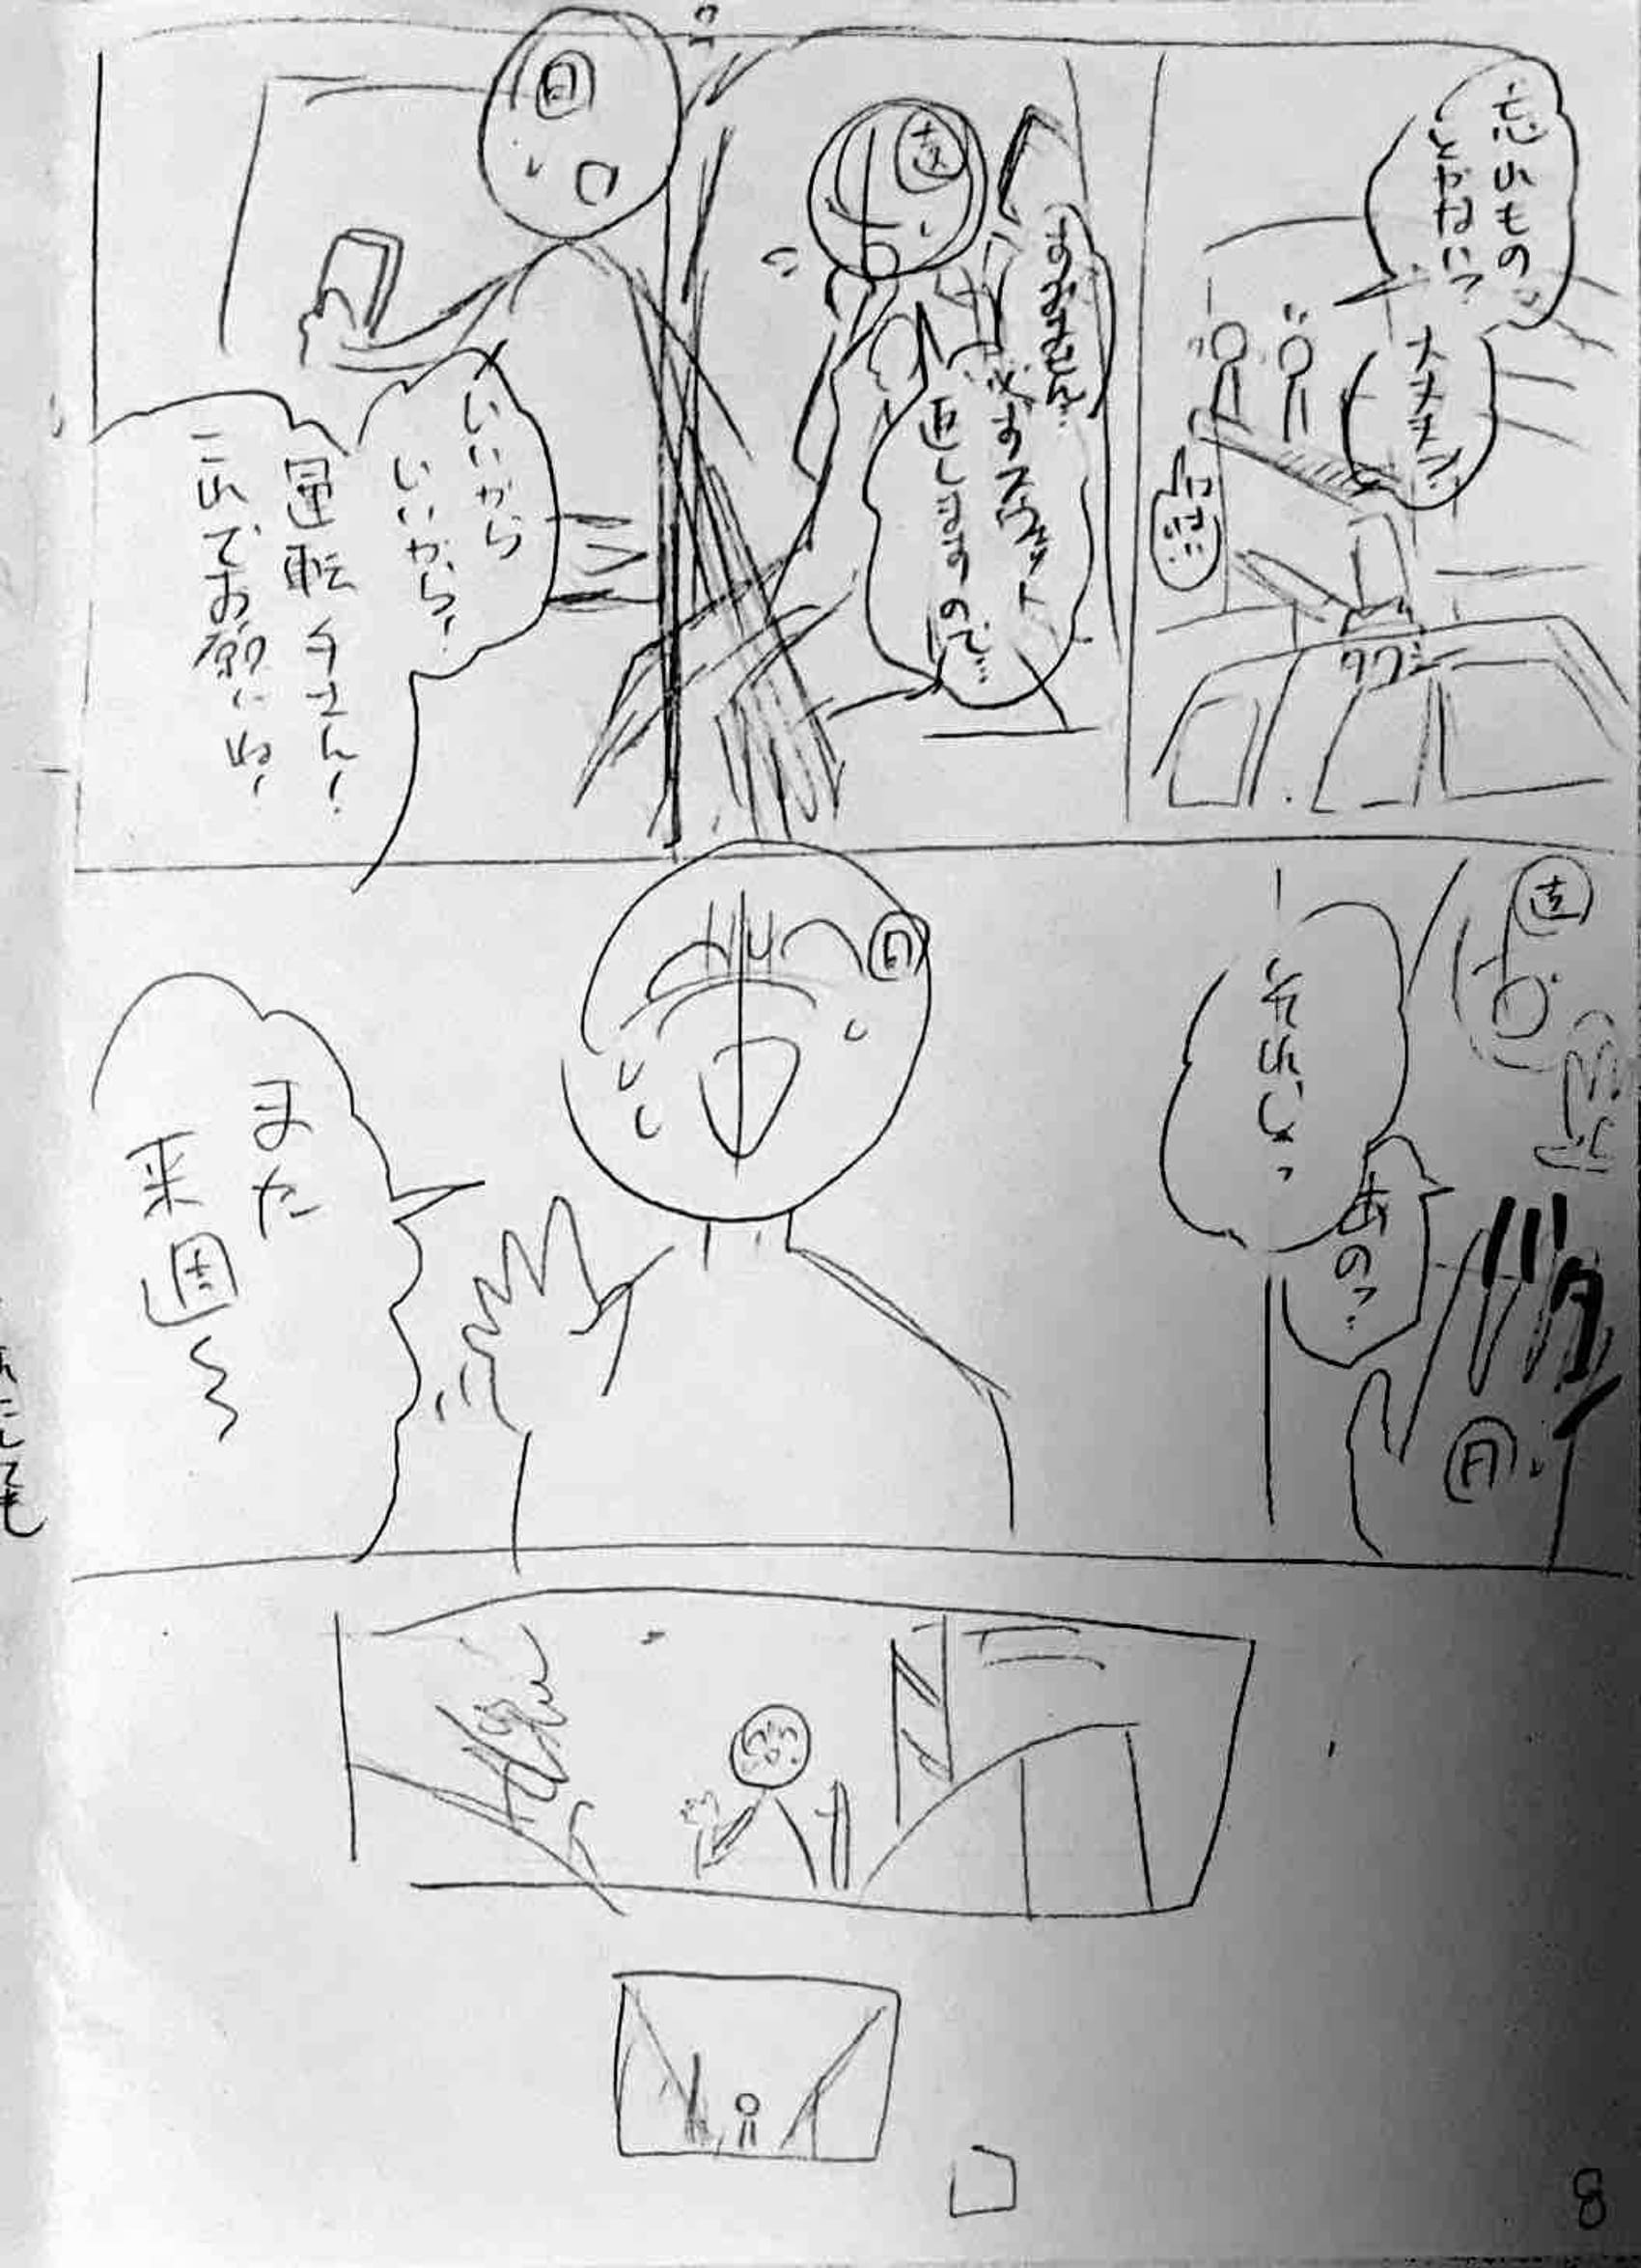 忘れもの
とかないっ?
大丈夫?
はい…
タクシー
すみません…
必ず
返しますので…
いいから
いいから!
運転手さん!
これでお願いね!
日
あのっ…
バタ
日
それじゃっ
日
また
来週〜
にしても
8